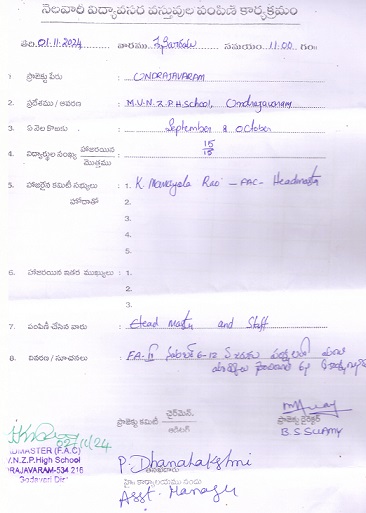 నెలవారీ విద్యావసర వస్తువుల పంపిణీ కార్యక్రమం
తేది. 01.11.2024 వారము శుక్రవారం సమయం. 11:00 గం॥
1. ప్రాజెక్టు పేరు : ONDRAJAVARAM
2. ప్రదేశము / ఆవరణ : M.V.N.Z.P.H.School, Ondrajavaram
3. ఏ నెల కొఱకు : September & October
4. విద్యార్థుల సంఖ్య హాజరయిన / మొత్తము : 15/15
5. హాజరైన కమిటీ సభ్యులు : 1. K. Rao - FAC - Headmaster
హోదాతో 2.
3.
4.
5.
6. హాజరయిన ఇతర ముఖ్యులు : 1.
2.
3.
7. పంపిణీ చేసిన వారు : Head Master and Staff
8. వివరణ / సూచనలు : FA-II 6-12
ప్రాజెక్టు కమిటీ ఛైర్‌మెన్. / ఆడిటర్ ప్రాజెక్టు డైరెక్టర్
B.S. SWAMY
02/11/24
HEADMASTER (F.A.C)
V.N.Z.P.High School
RAJAVARAM-534 216
Godavari Dist
P. Dhanalakshmi
హె౹౹ కార్యాలయము నందు
Asst. Manager